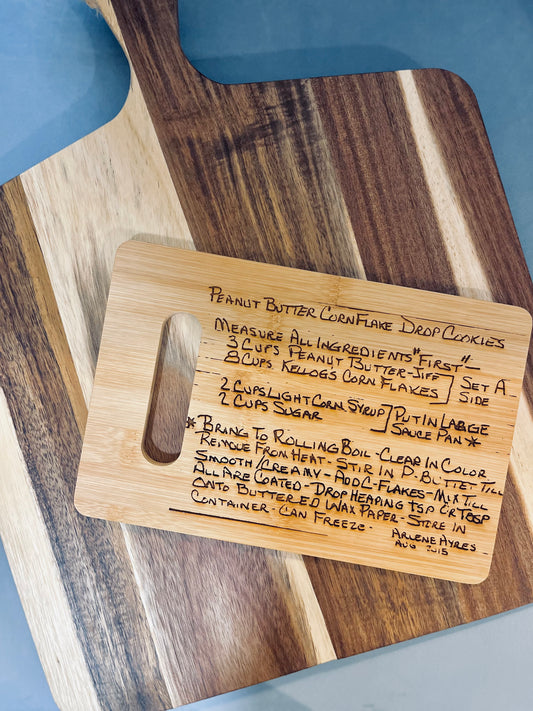 PEANUT BUTTER CORNFLAKE DROP COOKIES
MEASURE ALL INGREDIENTS "FIRST"-
3 CUPS PEANUT BUTTER-JIFF
8 CUPS KELLOGS CORN FLAKES ] SET A SIDE
2 CUPS LIGHT CORN SYRUP
2 CUPS SUGAR ] PUT IN LARGE SAUCE PAN *
* BRANG TO ROLLING BOIL - CLEAR IN COLOR
REMOVE FROM HEAT - STIR IN P. BUTTE- TILL
SMOOTH/CREAMY - ADD C-FLAKES - MIX TILL
ALL ARE COATED - DROP HEAPING tSP OR TBSP
ONTO BUTTERED WAX PAPER - STORE IN
CONTAINER - CAN FREEZE.
ARLENE AYRES
AUG 2015